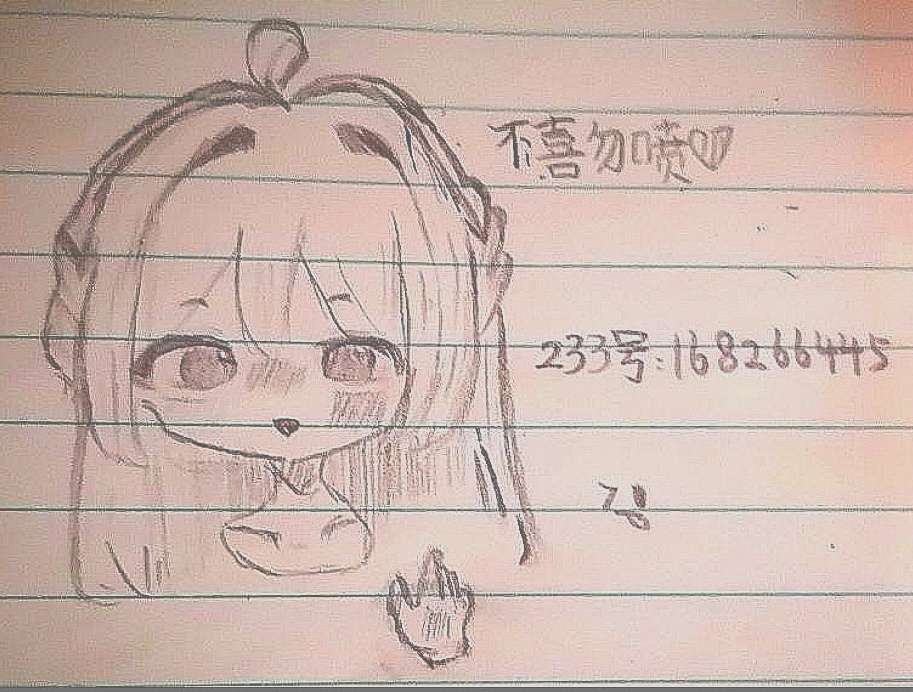 不喜勿喷
233号:168266445